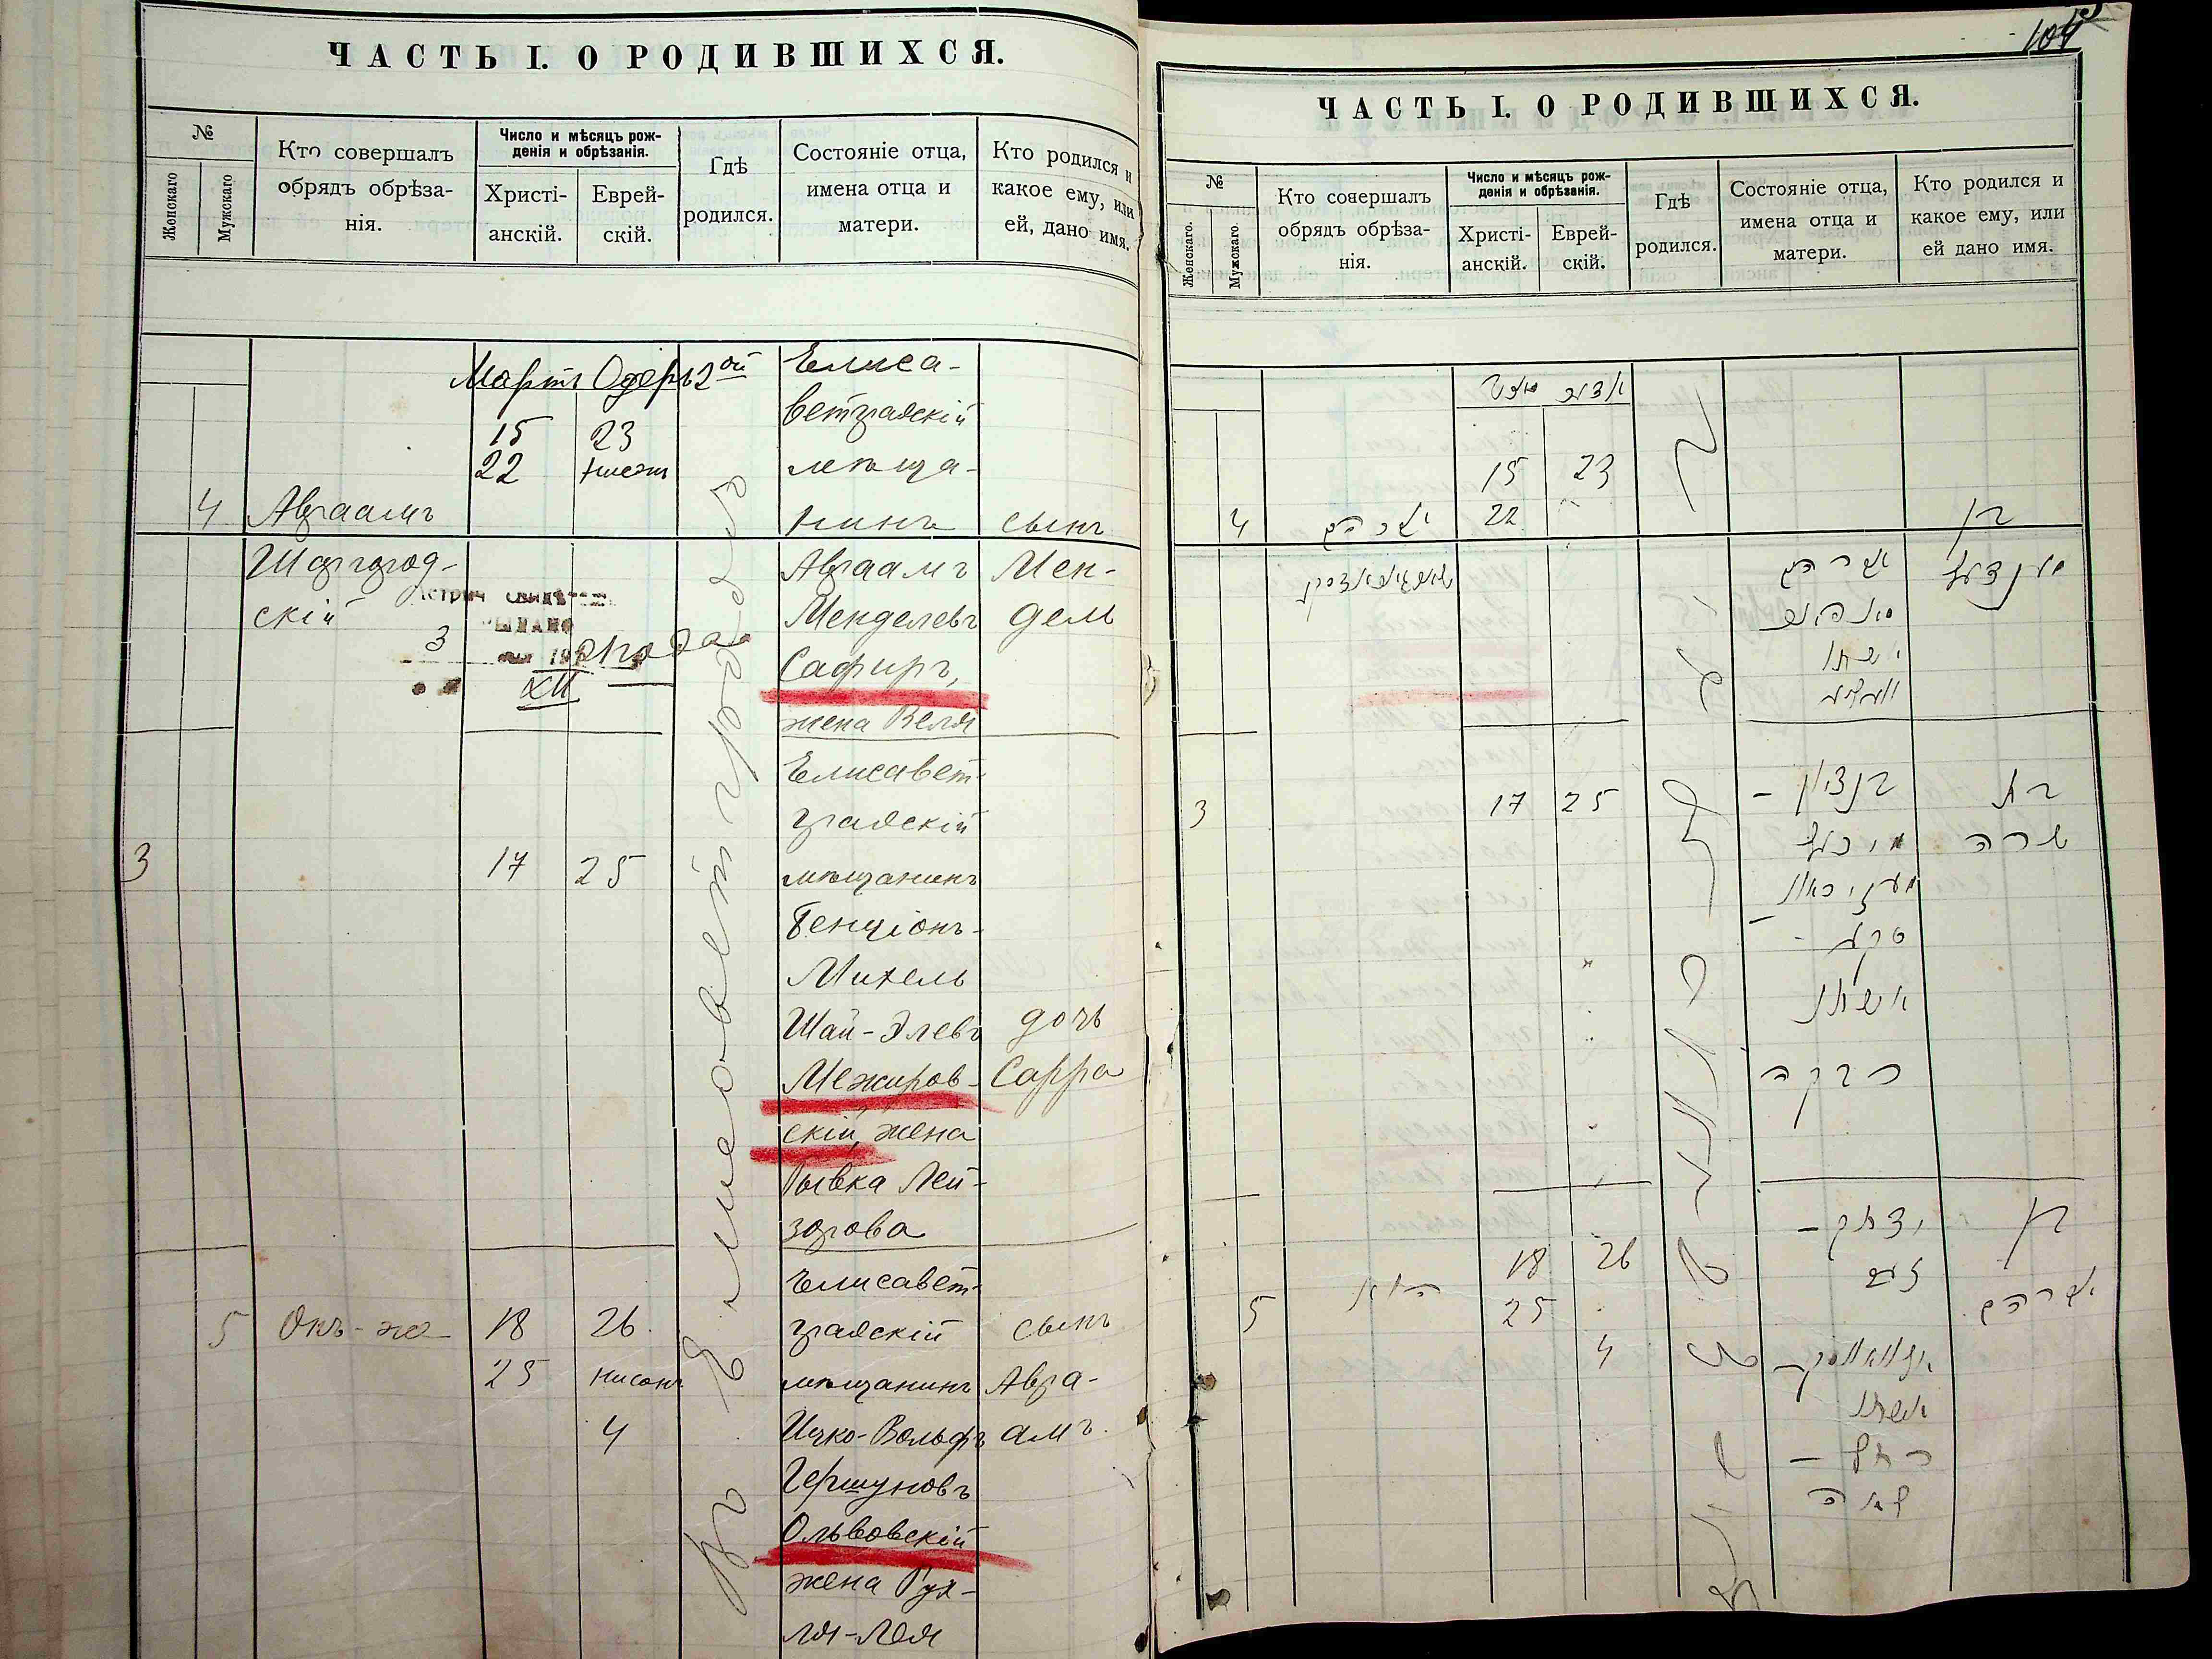 ЧАСТЬ I. О РОДИВШИХСЯ.
№
Женскаго
Мужскаго
Кто совершалъ
обрядъ обрѣза-
нія.
Число и мѣсяцъ рож-
денія и обрѣзанія.
Христі-
анскій.
Еврей-
скій.
Гдѣ
родился.
Состояніе отца,
имена отца и
матери.
Кто родился и
какое ему, или
ей, дано имя.
Мартъ Одеръ 2ой
15 23
22
4 Авраамъ
Шаргород-
скій
3
XII
Елиса-
ветградскій
мѣща-
нинъ
Авраамъ
Менделевъ
Сафиръ,
жена Веля
сынъ
Мен-
дель
3
17 25
Елисавет-
градскій
мѣщанинъ
Бенціонъ-
Михель
Шай-Элевъ
Межиров-
скій, жена
Рывка Лей-
зорова
дочь
Сарра
5 Онъ-же
18 26
25 нисонъ
4
Елисавет-
градскій
мѣщанинъ
Ицко-Вольфъ
Гершуновъ
Ольвовскій
жена Рух-
ля-Лея
сынъ
Авра-
амъ.
Въ Елисаветградѣ
104
ЧАСТЬ I. О РОДИВШИХСЯ.
№
Женскаго.
Мужскаго.
Кто совершалъ
обрядъ обрѣза-
нія.
Число и мѣсяцъ рож-
денія и обрѣзанія.
Христі-
анскій.
Еврей-
скій.
Гдѣ
родился.
Состояніе отца,
имена отца и
матери.
Кто родился и
какое ему, или
ей дано имя.
15 23
22
4 אברהם
אברהם
בן
מענדעל
3
17 25
בנציון -
מיכעל
רבקה
בת
שרה
5
18 26
25
4
יצחק -
רחל -
לאה
בן
אברהם